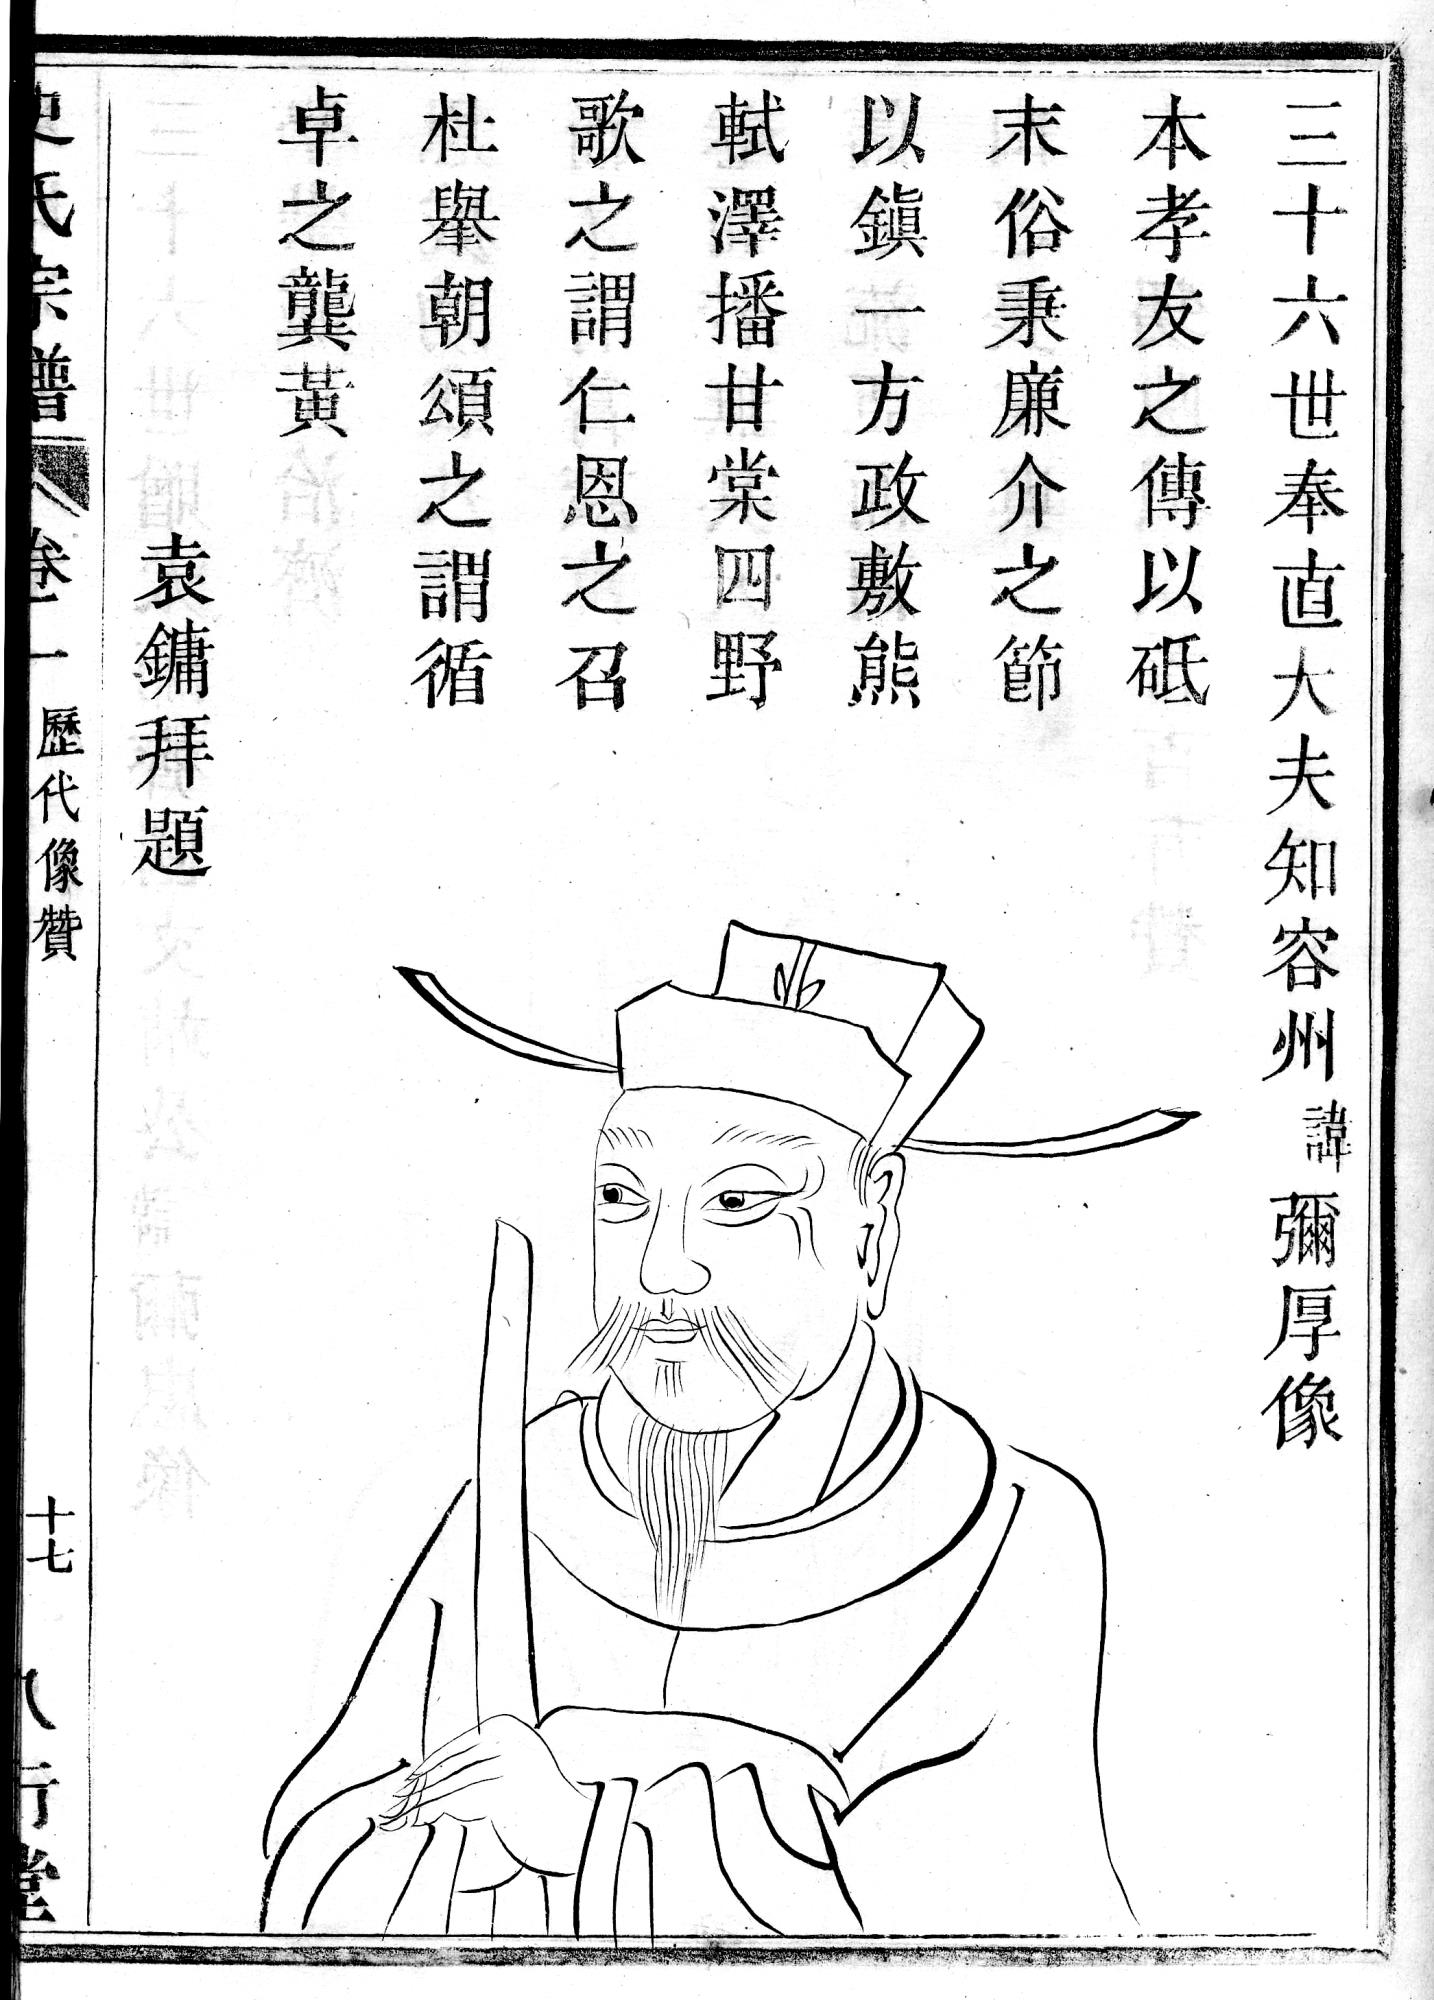 三十六世奉直大夫知容州諱彌厚像
本孝友之傳以砥
末俗秉廉介之節
以鎮一方政敷熊
軾澤播甘棠四野
歌之謂仁恩之召
杜舉朝頌之謂循
卓之龔黃
袁鏞拜題
史氏宗譜 卷一 歷代像贊 十七 八行堂